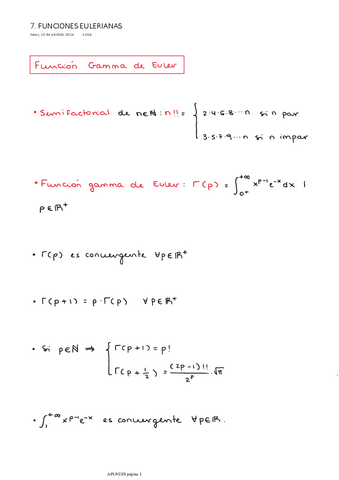 7. FUNCIONES EULERIANAS
Función Gamma de Euler
• Semifactorial de n∈ℕ: n!! = { 2·4·6·8···n si n par
3·5·7·9···n si n impar
• Función gamma de Euler: Γ(p) = ∫₀₊^{+∞} x^{p-1} e^{-x} dx |
p∈ℝ⁺
• Γ(p) es convergente ∀p∈ℝ⁺
• Γ(p+1) = p·Γ(p) ∀p∈ℝ⁺
• Si p∈ℕ ⇒ { Γ(p+1) = p!
Γ(p + 1/2) = (2p-1)!!/2^p · √π
• ∫₁^{+∞} x^{p-1} e^{-x} es convergente ∀p∈ℝ.
APUNTES página 1